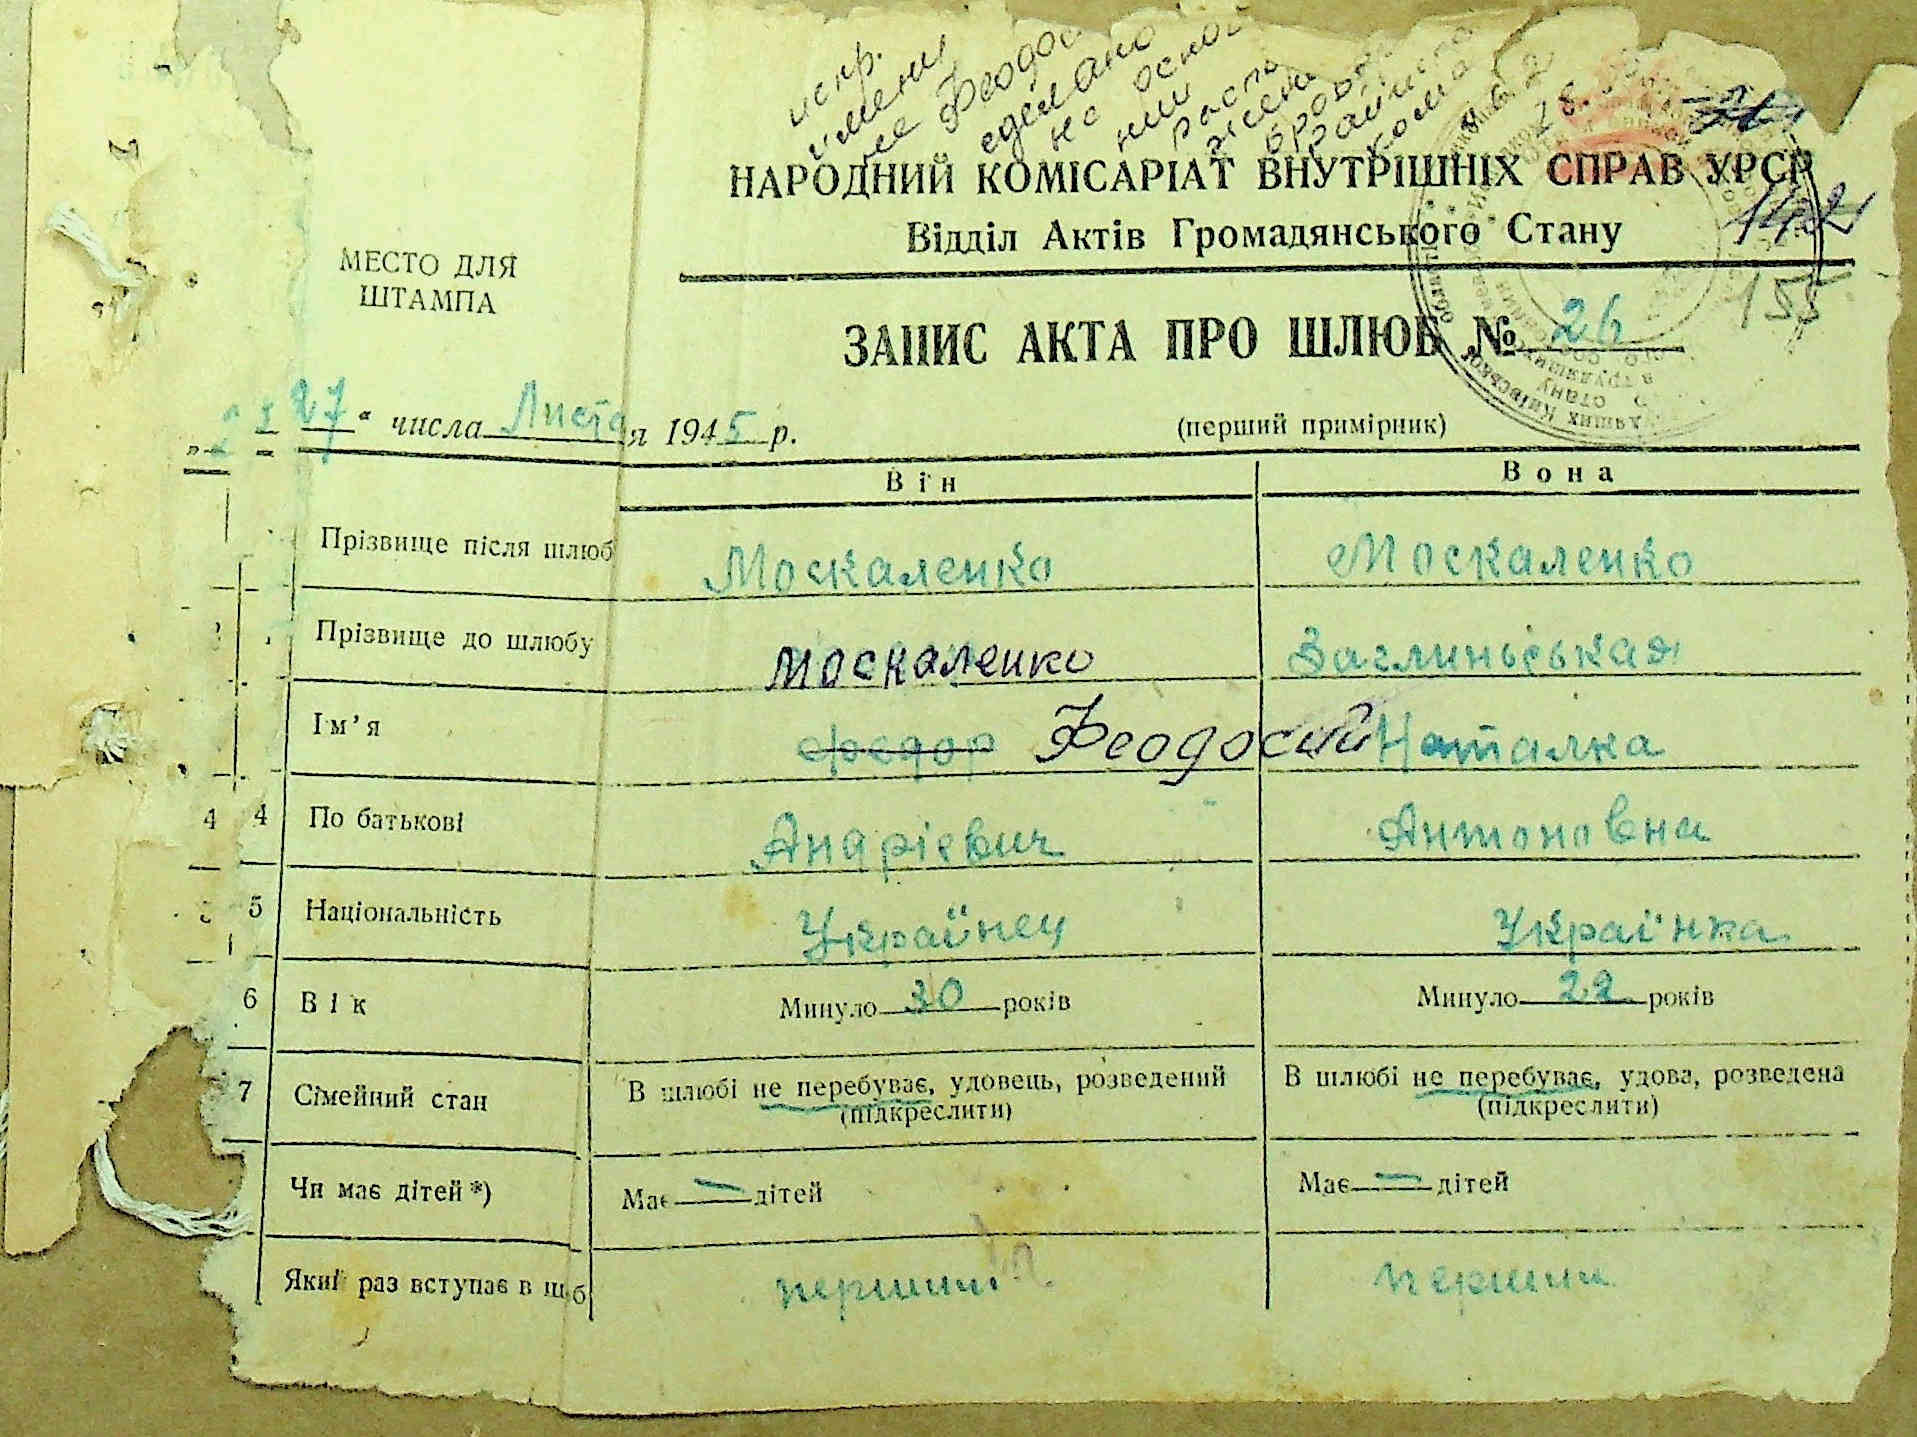 испр.
имени
Феодос
сделано
на основ
нии
НАРОДНИЙ КОМІСАРІАТ ВНУТРІШНІХ СПРАВ УРСР
Відділ Актів Громадянського Стану
142
155
МЕСТО ДЛЯ
ШТАМПА
ЗАПИС АКТА ПРО ШЛЮБ № 26
27 “ числа Листо я 1945 р.
(перший примірник)
Він Вона
Прізвище після шлюб Москаленко Москаленко
Прізвище до шлюбу Москаленко Заглиньська
Ім’я Федор Феодосий Наталка
4 4 По батькові Андрієвич Антоновна
5 Національність Українец Українка
6 Вік Минуло 30 років Минуло 22 років
7 Сімейний стан В шлюбі не перебуває, удовець, розведений В шлюбі не перебуває, удова, розведена
(підкреслити) (підкреслити)
Чи має дітей*) Має — дітей Має — дітей
Який раз вступає в ш б первший перший